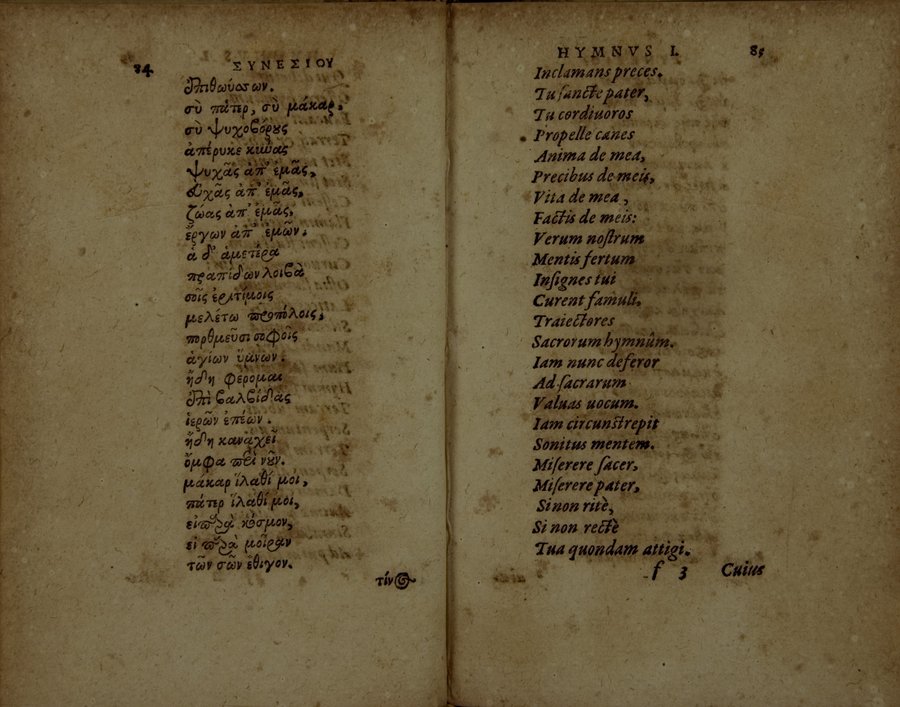 84
ΣΥΝΕΣΙΟΥ
ἐπιθωύσσων.
σὺ πάτερ, σὺ μάκαρ,
σὺ ψυχοβόρους
ἀπέρυκε κύνας
ψυχᾶς ἀπ' ἐμᾶς,
εὐχᾶς ἀπ' ἐμᾶς,
ζωᾶς ἀπ' ἐμᾶς,
ἔργων ἀπ' ἐμῶν.
ἁ δ' ἁμετέρα
πραπίδων λοιβὰ
σοῖς ἐριτίμοις
μελέτω προπόλοις,
πορθμεῦσι σοφοῖς
ἁγίων ὕμνων.
ἤδη φέρομαι
ἐπὶ βαλβῖδας
ἱερῶν ἐπέων.
ἤδη καναχεῖ
ὀμφὰ περὶ νοῦν.
μάκαρ ἵλαθί μοι,
πάτερ ἵλαθί μοι,
εἰ παρὰ κόσμον,
εἰ παρὰ μοῖραν
τῶν σῶν ἔθιγον.
τίνος
HYMNVS I. 85
Inclamans preces.
Tu sancte pater,
Tu cordiuoros
Propelle canes
Anima de mea,
Precibus de meis,
Vita de mea,
Factis de meis:
Verum nostrum
Mentis fertum
Insignes tui
Curent famuli,
Traiectores
Sacrorum hymnûm.
Iam nunc deferor
Ad sacrarum
Valuas uocum.
Iam circunstrepit
Sonitus mentem.
Miserere sacer,
Miserere pater,
Si non ritè,
Si non rectè
Tua quondam attigi.
f 3 Cuius